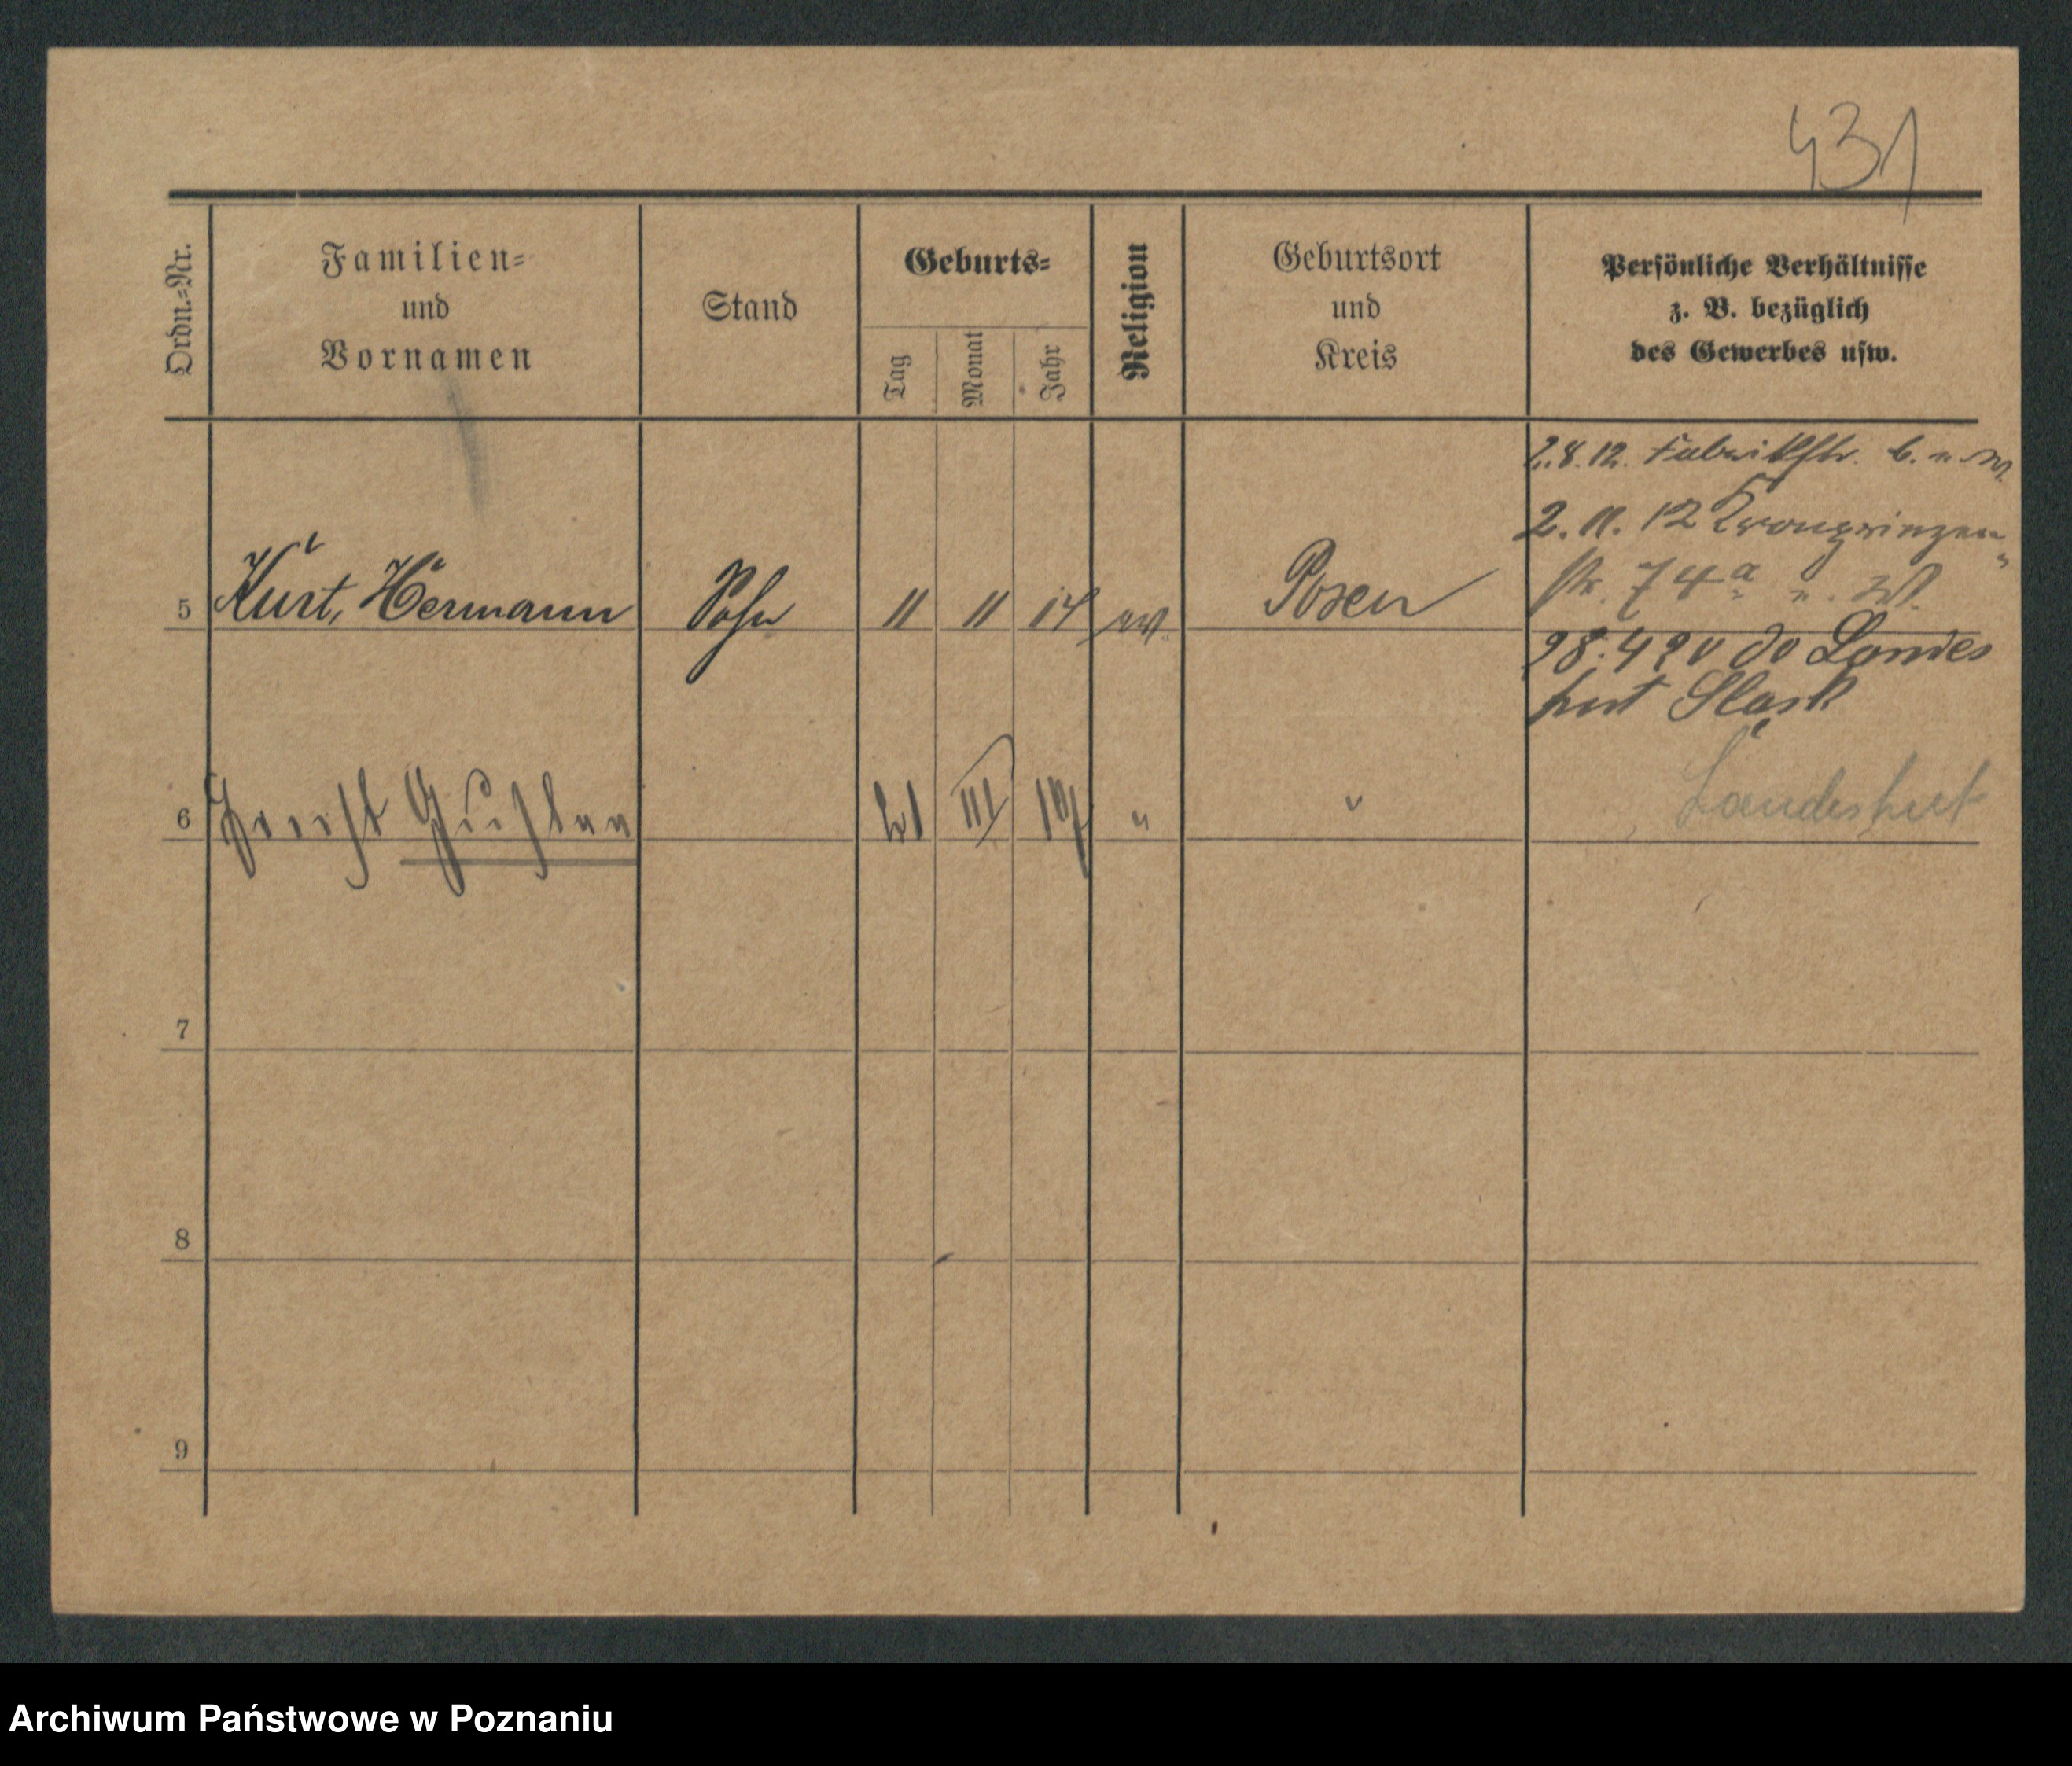 431
Ordn.=Nr.
Familien=
und
Vornamen
Stand
Geburts=
Tag
Monat
Jahr
Religion
Geburtsort
und
Kreis
Persönliche Verhältnisse
z. B. bezüglich
des Gewerbes usw.
2.8.12. Fabrikstr. 6.
2.11.12 Kronprinzen
5 Kurt, Hermann Sohn 11 11 14 ev. Posen
str. 74a
28.4 20 do Landes
hut Śląsk
6 Gustav 21 III 19 " " Landeshut
7
8
9
Archiwum Państwowe w Poznaniu